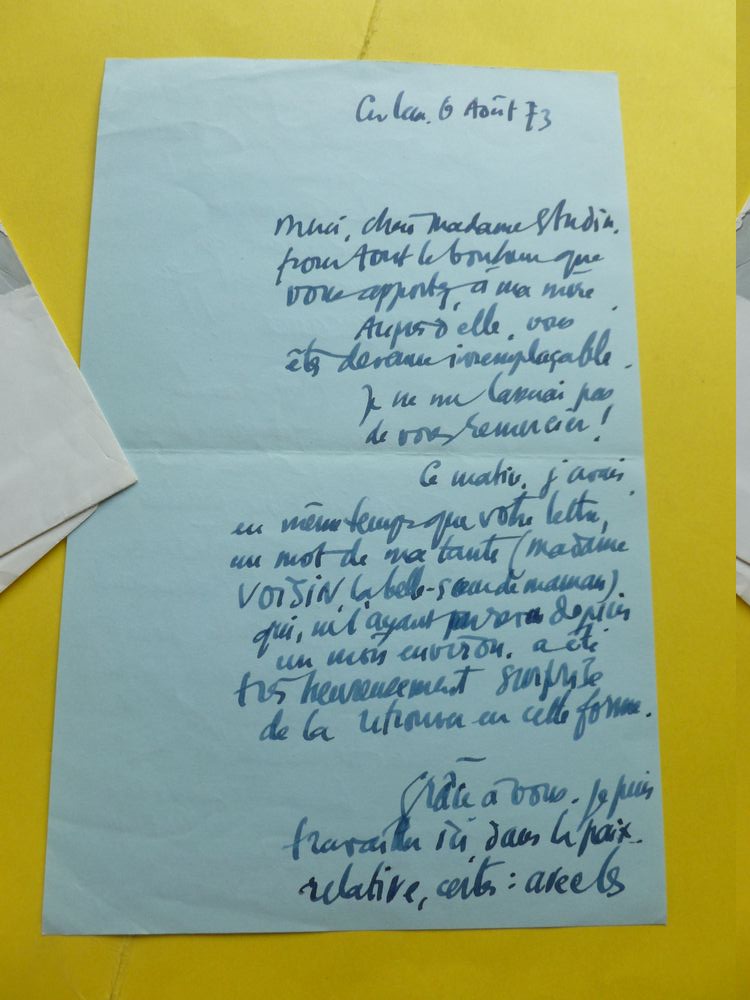 6 Août 73
Merci, chère Madame Studin,
pour tout le bonheur que
vous apportez à ma mère.
Auprès d'elle, vous
êtes devenue irremplaçable.
Je ne me lasserai pas
de vous remercier!
Ce matin, j'avais
en même temps que votre lettre,
un mot de ma tante (Madame
VOISIN, la belle-sœur de maman)
qui, ne l'ayant pas vue depuis
un mois environ, a été
très heureusement surprise
de la retrouver en cette forme.
Grâce à vous, je puis
travailler ici dans la paix.
relative, certes : avec les